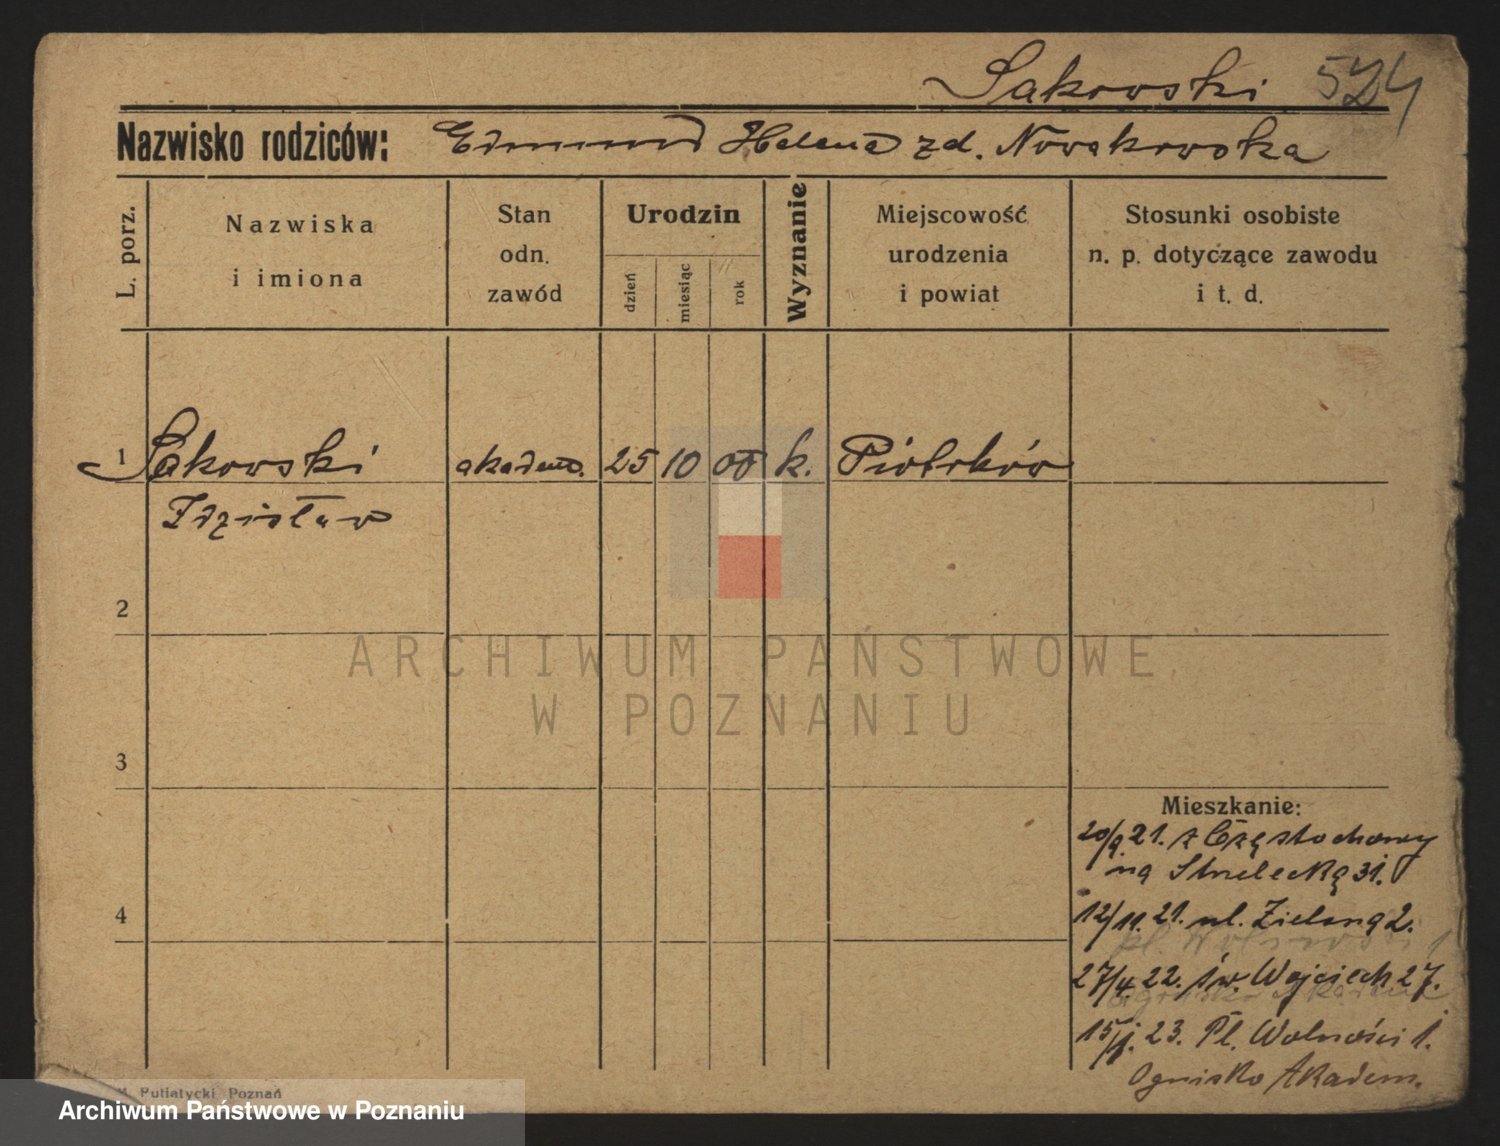 Sakowski 524
Nazwisko rodziców: Edmund Helena zd. Nowakowska
L. porz.
Nazwiska
i imiona
Stan
odn.
zawód
Urodzin
dzień
miesiąc
rok
Wyznanie
Miejscowość
urodzenia
i powiat
Stosunki osobiste
n. p. dotyczące zawodu
i t. d.
1 Sakowski akadem. 25 10 00 k. Piotrków
Zdzisław
2
ARCHIWUM PAŃSTWOWE
W POZNANIU
3
Mieszkanie:
20/9. 21. z Częstochowy
na Strzelecką 31.
4
12/11. 21. ul. Zielona 2.
pl. Wolności 1
27/4 22. św. Wojciech 27.
15/1. 23. Pl. Wolności 1.
Ognisko Akadem.
Putiatycki Poznań
Archiwum Państwowe w Poznaniu